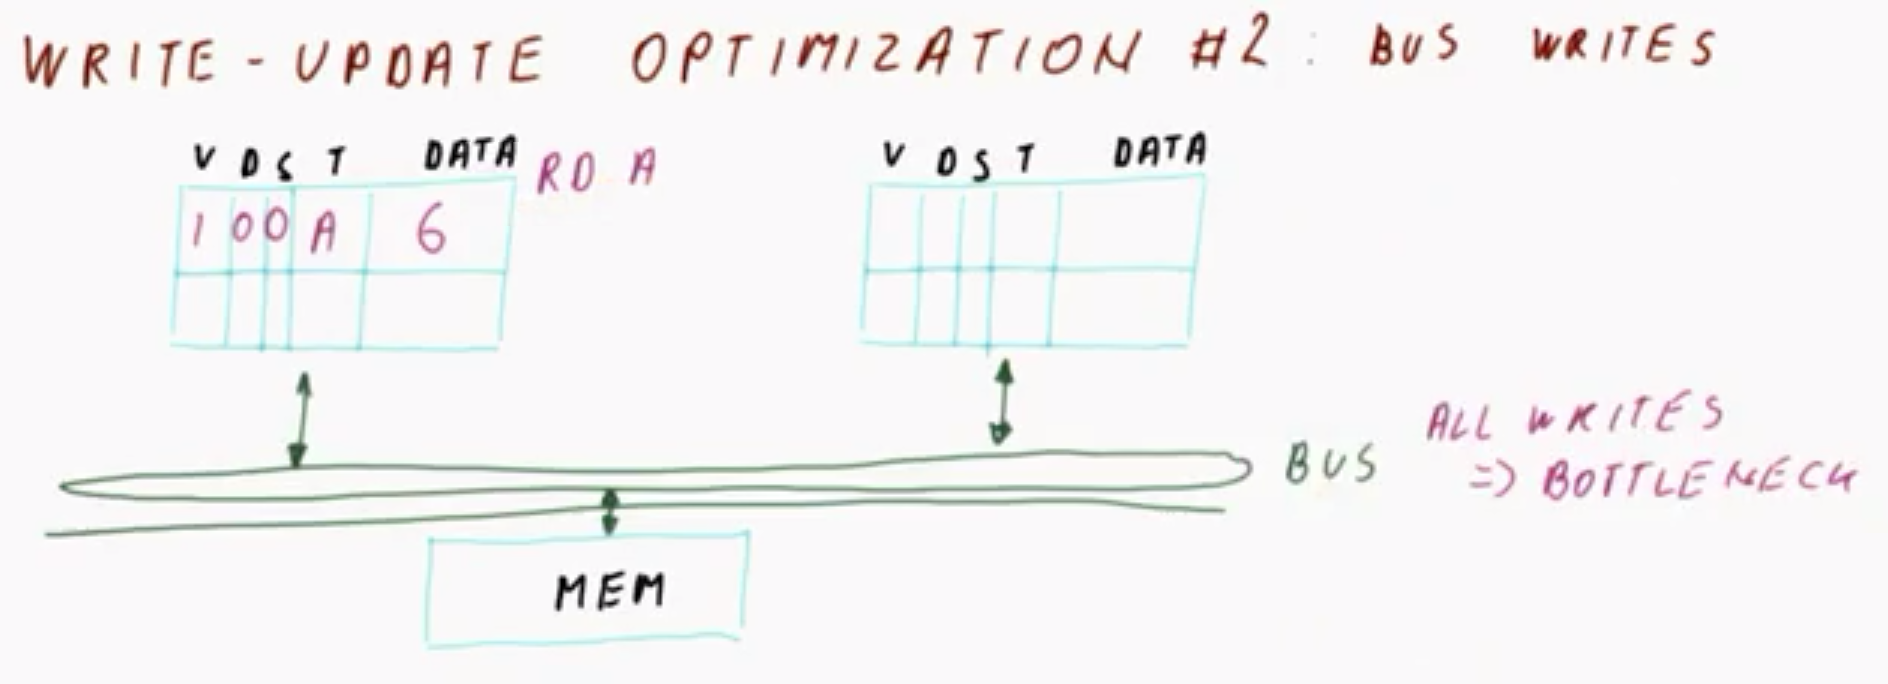 WRITE-UPDATE OPTIMIZATION #2: BUS WRITES
V D S T DATA RD A
1 0 0 A 6
V D S T DATA
ALL WRITES
BUS
=> BOTTLENECK
MEM